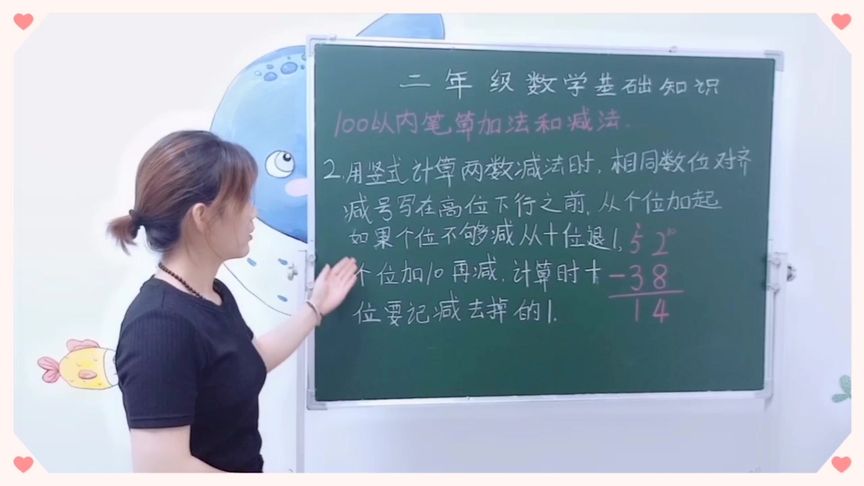 二年级数学基础知识
100以内笔算加法和减法.
2.用竖式计算两数减法时,相同数位对齐
减号写在高位下行之前,从个位加起
如果个位不够减从十位退1,
个位加10再减.计算时十
位要记减去掉的1.
52
-38
14